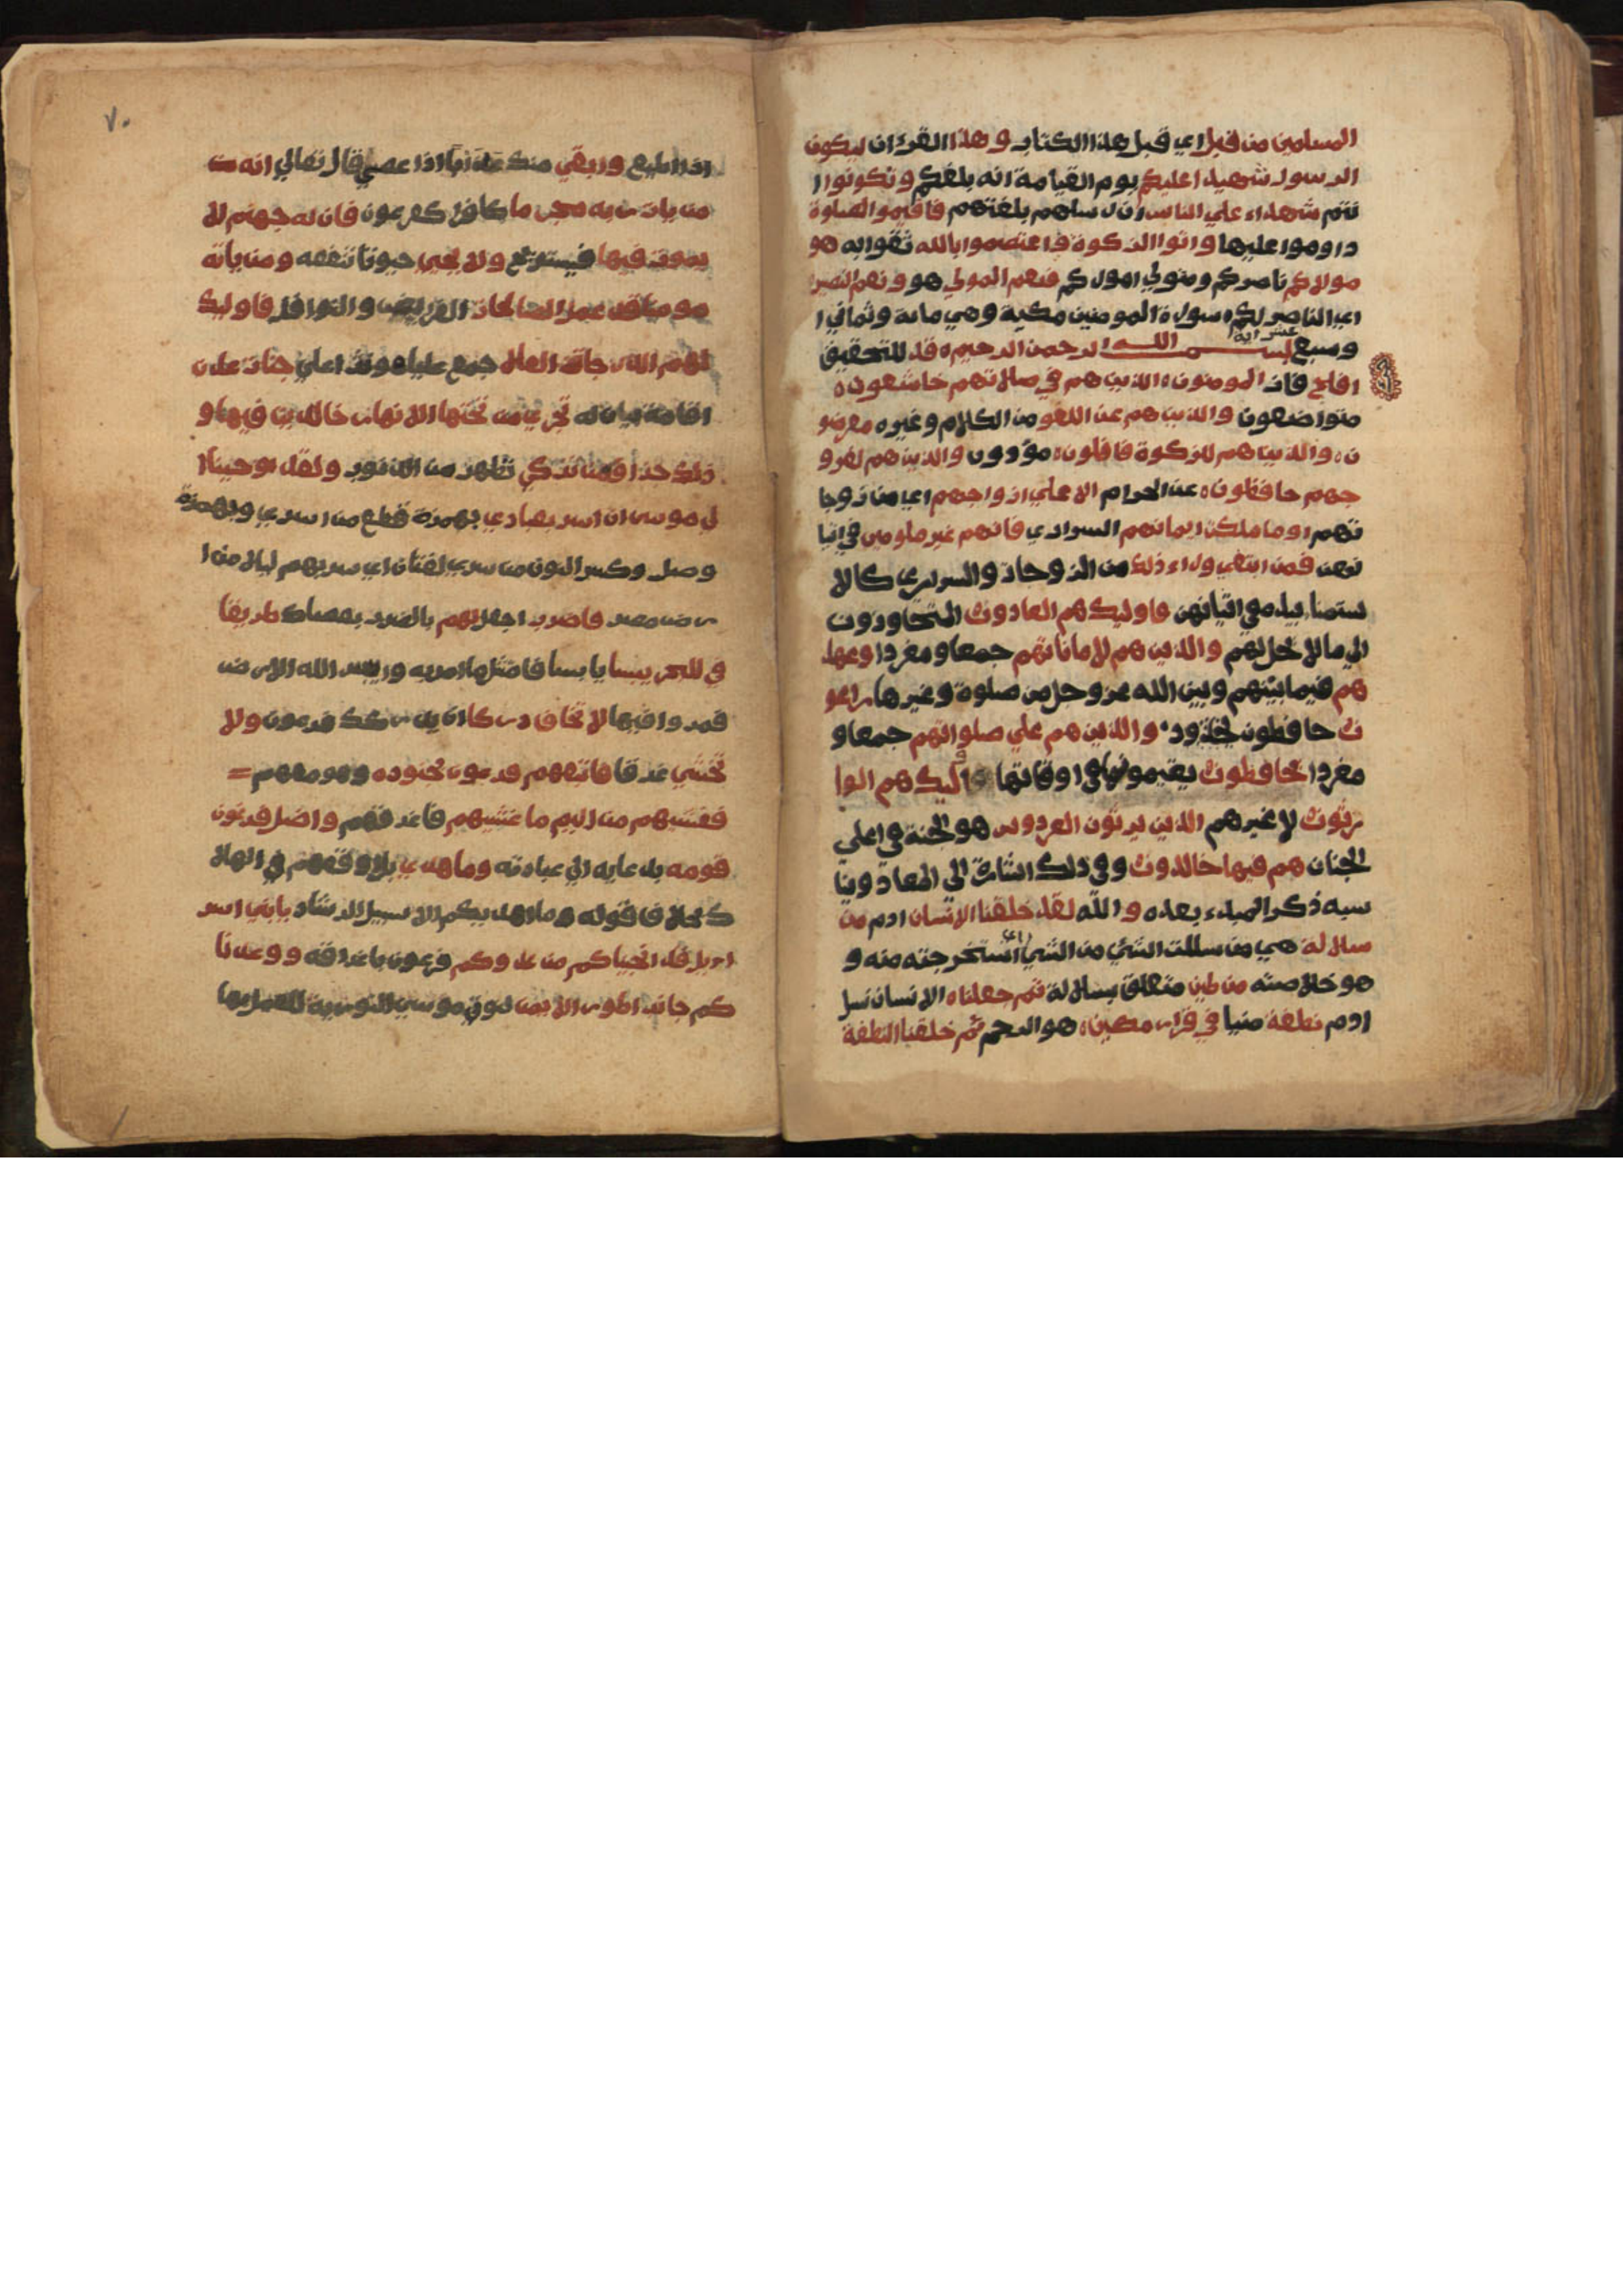 المسلمين من قبل اي قبل هذا الكتاب و هذا القرءان ليكون
الرسول شهيدا عليكم يوم القيامة انه بلغكم و تكونوا ا
نتم شهداء علي الناس ان رسلهم بلغتهم فاقيموا الصلوة
داوموا عليها واتوا الزكوة واعتصموا بالله ثقوا به هو
مولاكم ناصركم ومتولي اموركم فنعم المولي هو ونعم النصير
اي الناصر لكم سورة المومنين مكية وهي ماية وثماني ا
وسبع عشر اية بسم الله الرحمن الرحيم قد للتحقيق
افلح فاز المومنون الذين هم في صلاتهم خاشعون
متواضعون والذين هم عن اللغو من الكلام وغيره معرضو
ن والذين هم للزكوة فاعلون مؤدون والذين هم لفرو
جهم حافظون عن الحرام الا علي ازواجهم اي من زوجا
تهم او ما ملكت ايمانهم السراري فانهم غير ملومين في اتيا
نهن فمن ابتغي وراء ذلك من الزوجات والسراري كالا
ستمنا بيده في اتيانهن فاوليك هم العادون المتجاوزون
الي ما لا يحل لهم والذين هم لاماناتهم جمعا و مفردا وعهد
هم فيما بينهم وبين الله عز وجل من صلوة وغيرها راعو
ن حافظون والذين هم علي صلواتهم جمعا و
مفردا يحافظون يقيمونها في اوقاتها اوليك هم الوا
رثون لا غيرهم الذين يرثون الفردوس هو الجنة في اعلي
الجنان هم فيها خالدون وفي ذلك اشارة الي المعاد ويا
سبه ذكر المبدء بعده و الله لقد خلقنا الانسان ادم من
سلالة هي من سللت الشي من الشي اي استخرجته منه و
هو خلاصته من طين متعلق بسلالة ثم جعلناه الانسان نسل
ادم نطفة منيا في قرار مكين هو الرحم ثم خلقنا النطفة
٧٠
اذا اطيع وابقي منك عذابا اذا عصي قال تعالي انه
من يات ربه مجرما كافرا كفرعون فان له جهنم لا
يموت فيها فيستريح ولا يحيي حيوتا تنفعه ومن ياته
مومنا قد عمل الصالحات الفرايض والنوافل فاوليك
لهم الدرجات العلي جمع عليا مونث اعلي جنات عدن
اقامة بيان له تجري من تحتها الانهار خالدين فيها و
ذلك جزا من تزكي تطهر من الذنوب ولقد اوحينا ا
لي موسي ان اسر بعبادي بهمزة قطع من اسري وبهمزة
وصل وكسر النون من سري لغتان اي سر بهم ليلا من ا
رض مصر فاضرب اجعل لهم بالضرب بعصاك طريقا
في البحر يبسا يابسا فامتثل ما امر به وايبس الله الارض
فمروا فيها لا تخاف دركا ان يدركك فرعون ولا
تخشي غرقا فاتبعهم فرعون بجنوده وهو معهم
فغشيهم من اليم ما غشيهم فاغرقهم واضل فرعون
قومه بدعايه الي عبادته وما هدي بل اوقعهم في الهلا
ك خلاف قوله وما اهديكم الا سبيل الرشاد يا بني اسر
ايل قد انجيناكم من عدوكم فرعون باغراقه ووعدنا
كم جانب الطور الايمن لنوتي موسي التورية للعمل بها